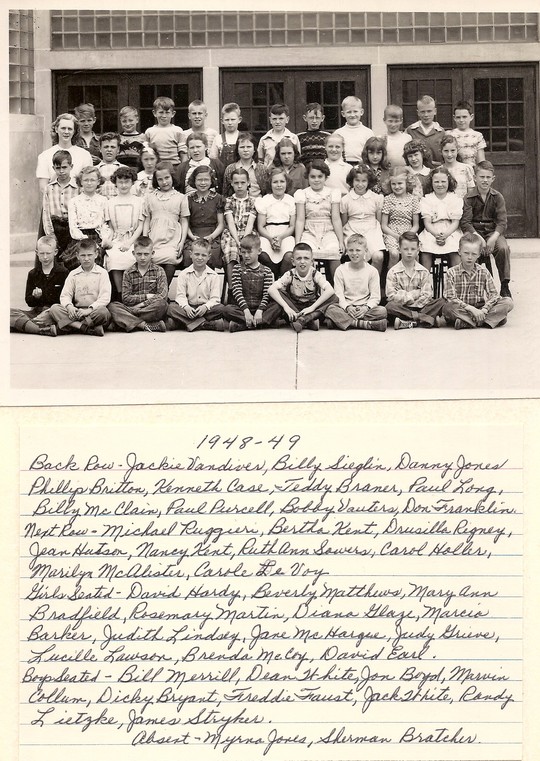 1948-49
Back Row - Jackie Vandiver, Billy Sieglin, Danny Jones
Phillip Britton, Kenneth Case, Teddy Braner, Paul Long,
Billy McClain, Paul Purcell, Bobby Vauters, Don Franklin.
Next Row - Michael Ruggieri, Bertha Kent, Drusilla Rigney,
Jean Hutson, Nancy Kent, Ruth Ann Sowers, Carol Holler,
Marilyn McAlister, Carole De Voy
Girls Seated - David Hardy, Beverly Matthews, Mary Ann
Bradfield, Rosemary Martin, Diana Glaze, Marcia
Barker, Judith Lindsey, Jane McHargue, Judy Grieve,
Lucille Lawson, Brenda McCoy, David Earl.
Boys Seated - Bill Merrill, Dean White, Jon Boyd, Marvin
Collum, Dicky Bryant, Freddie Faust, Jack White, Randy
Lietzke, James Stryker.
Absent - Myrna Jones, Sherman Bratcher.